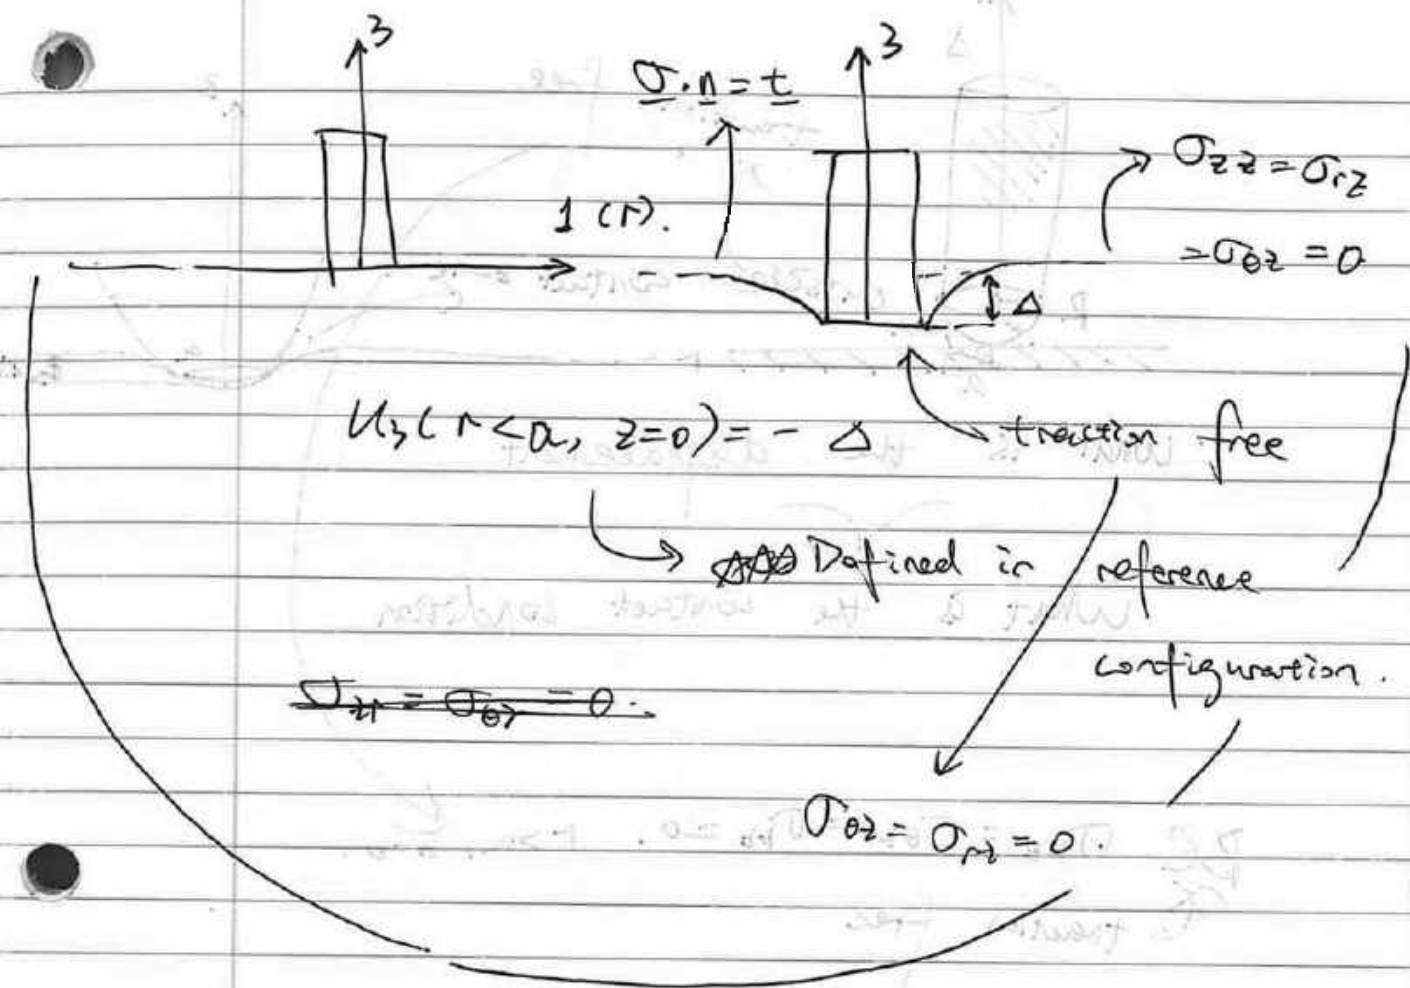 3
3
σ·n = t
σzz = σrz
1 (r).
= σθz = 0
Δ
U3 (r<a, z=0) = - Δ
traction free
Defined in reference
configuration.
σzr = σθz = 0.
σθz = σrz = 0.